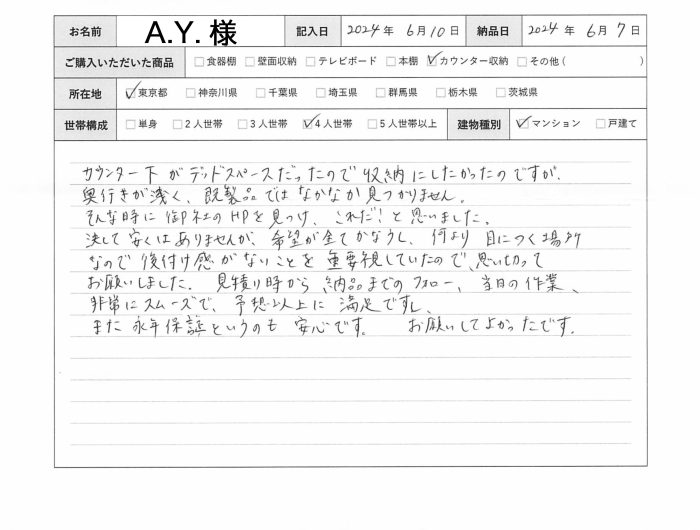 お名前 A.Y.様 記入日 2024年 6月10日 納品日 2024年 6月7日
ご購入いただいた商品 □食器棚 □壁面収納 □テレビボード □本棚 ☑カウンター収納 □その他( )
所在地 ☑東京都 □神奈川県 □千葉県 □埼玉県 □群馬県 □栃木県 □茨城県
世帯構成 □単身 □2人世帯 □3人世帯 ☑4人世帯 □5人世帯以上 建物種別 ☑マンション □戸建て
カウンター下がデッドスペースだったので収納にしたかったのですが、
奥行きが浅く、既製品ではなかなか見つかりません。
そんな時に御社のHPを見つけ、これだ!と思いました。
決して安くはありませんが、希望が全てかなうし、何より目につく場所
なので後付け感がないことを重要視していたので、思い切って
お願いしました。見積り時から納品までのフォロー、当日の作業、
非常にスムーズで、予想以上に満足です。
また永年保証というのも安心です。 お願いしてよかったです。